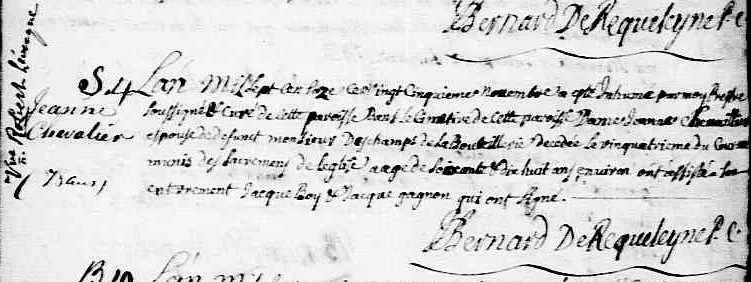 Bernard DeRequeleyne P. C
Vve Robert Lévesque
S4
Jeanne
Chevalier
73 ans
Lan Mil Sept Cen Soze Ce Vingt Cinquieme Novembre a epté Inhumé par moy Prestre
soussigné & Curé de Cette paroisse Dans le Cimetiere de Cette paroisse Dame Jeanne Chevallier
espouse de defunct monsieur Deschamps de la Bouteillerie decedée le vinquatrieme du Couran
munis des Sacremens de leglise aage de soixante & dix huit ans environ ont assisté a Son
enterrement Jacque Boy & Jacque gagnon qui ont signé.
Bernard DeRequeleyne P. C
Lan Mil